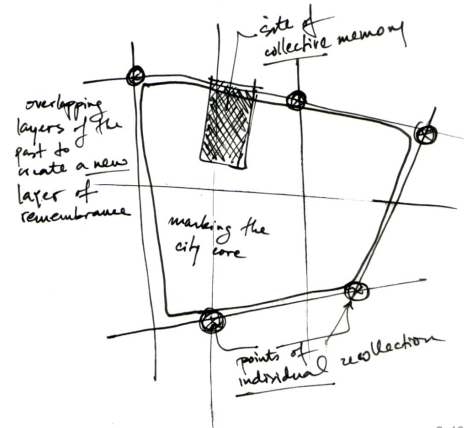 site of
collective memory
overlapping
layers of the
past to
create a new
layer of
remembrance
marking the
city core
points of
individual recollection